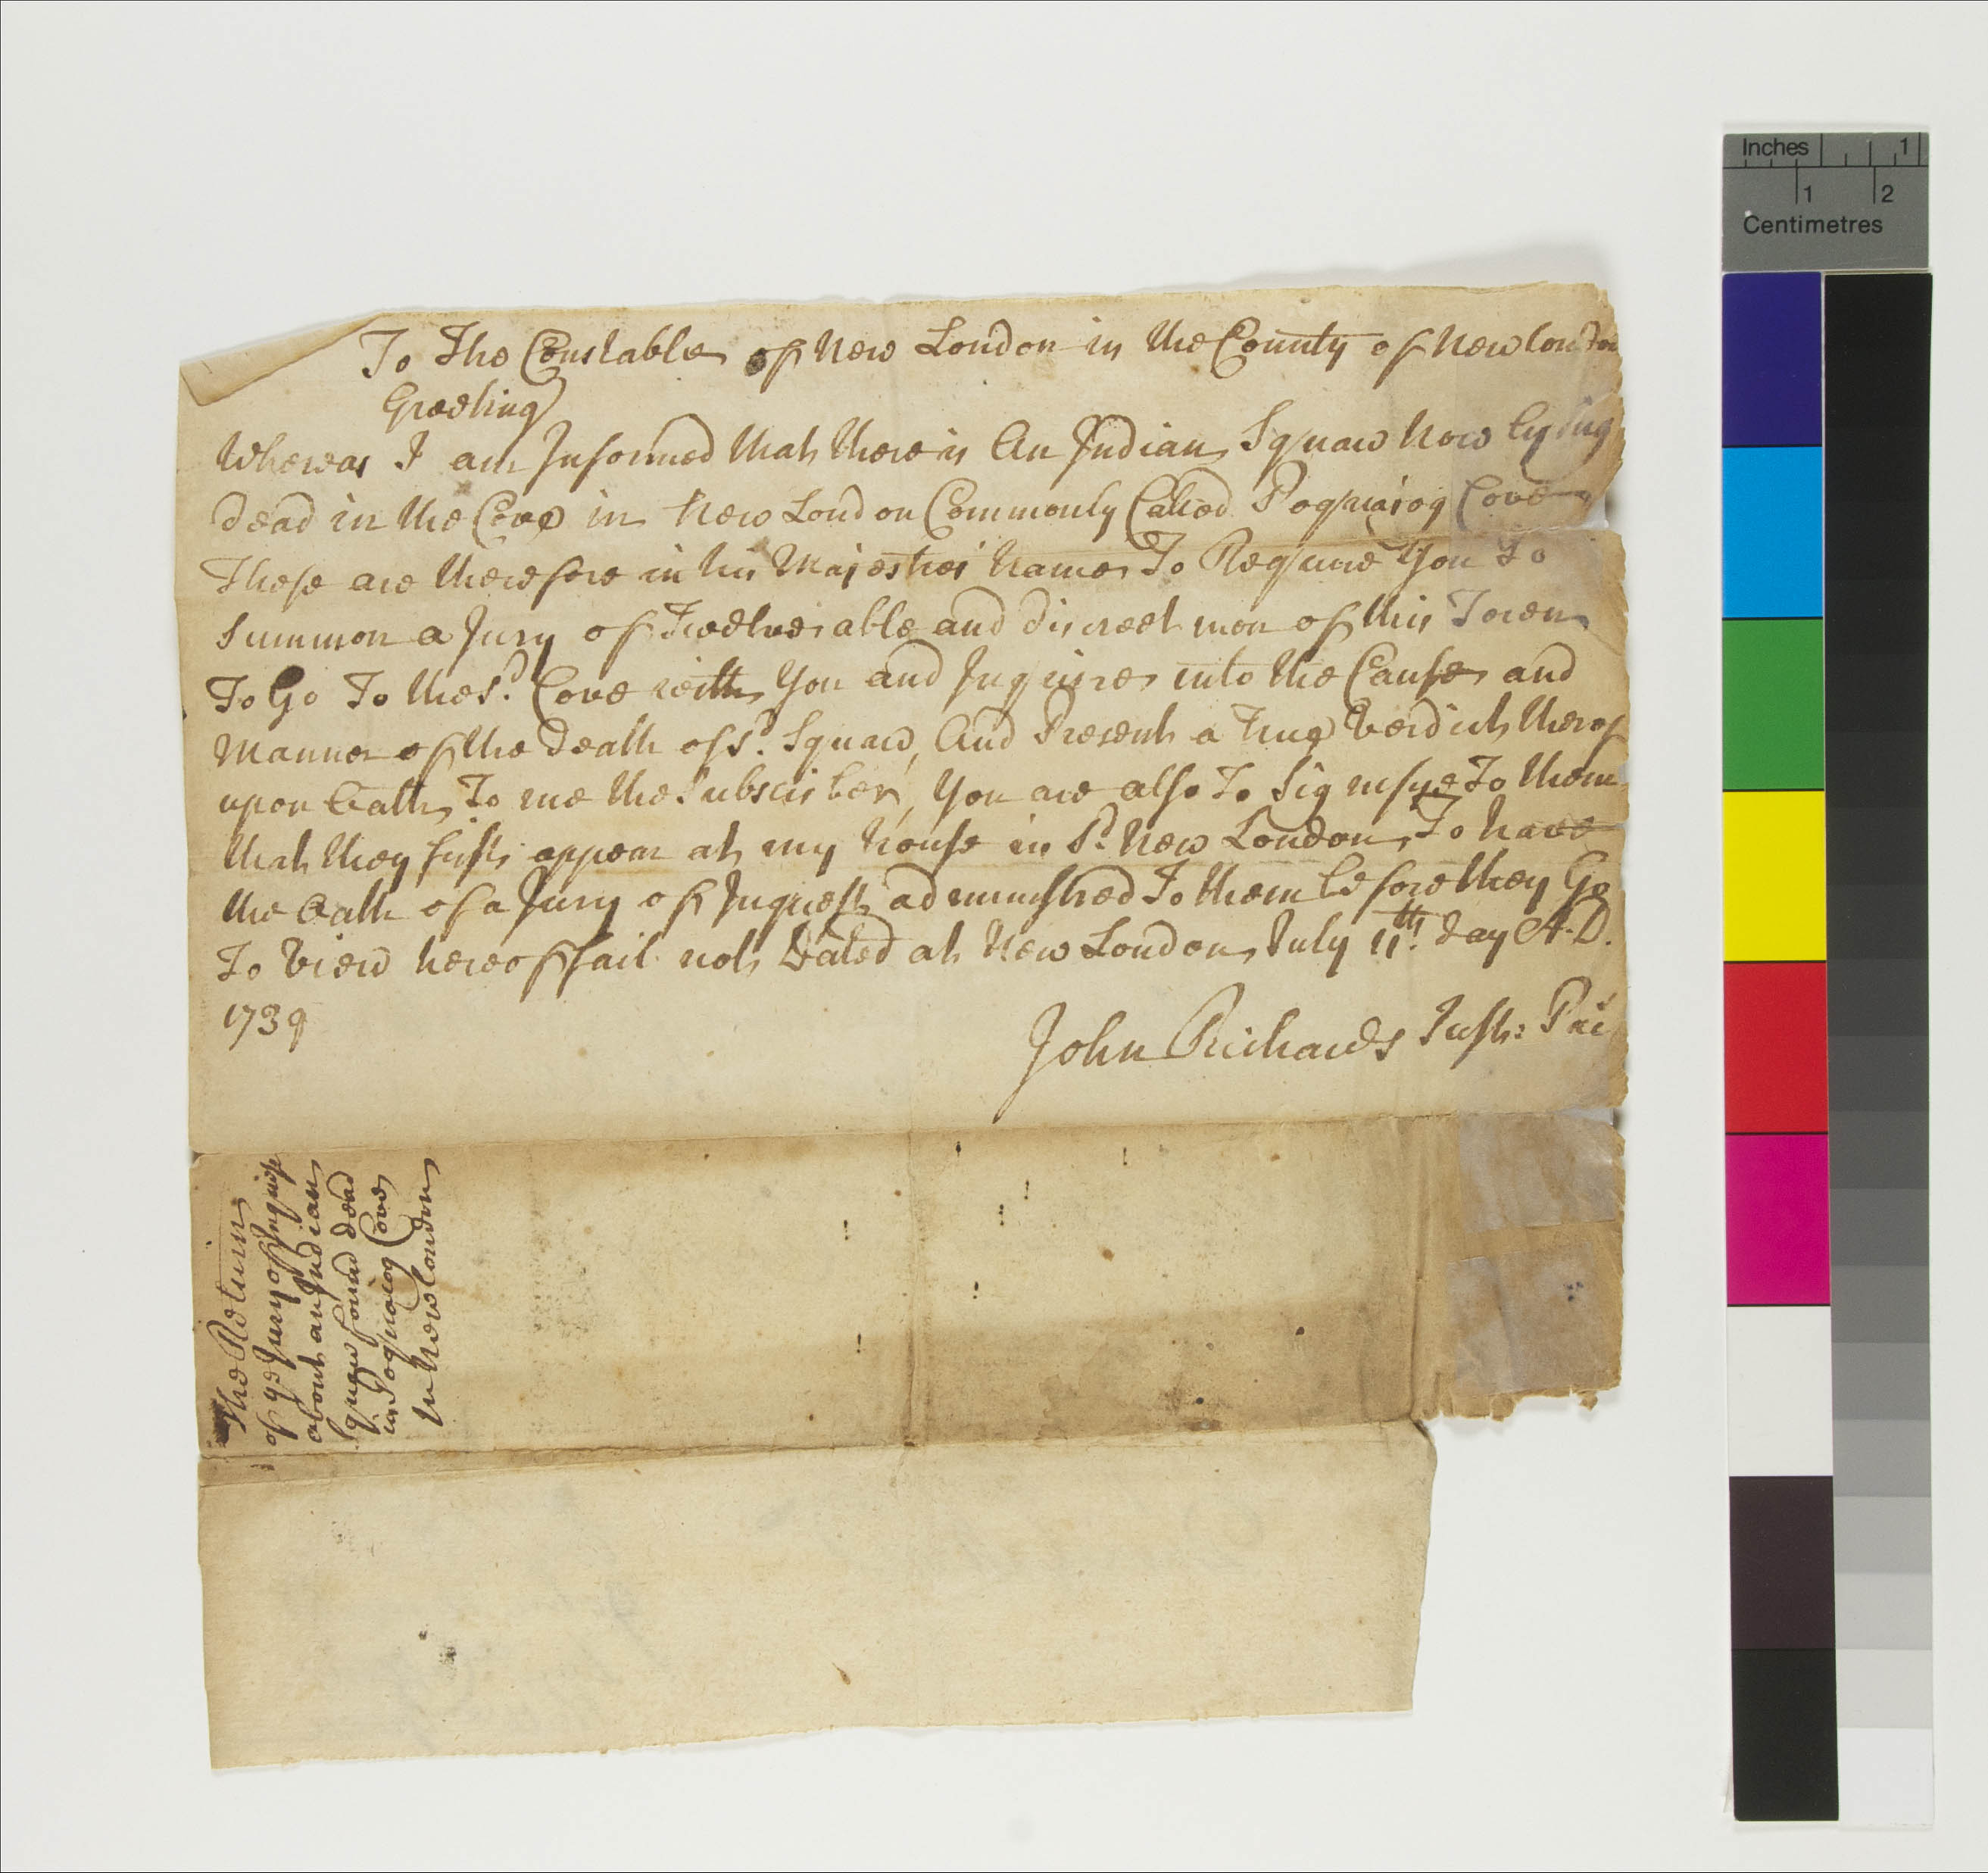 To The Constable of New London in the County of New london
Greeting
Whereas I am Informed that there is An Indian Squaw Now lying
dead in the Cove in New London Commonly Called Poquaiog Cove
These are therefore in his Majesties Name To Require You To
Summon a Jury of Twelve able and discreet men of this Town
To Go To the sd. Cove with You and Inquire into the Cause and
Manner of the death of sd. Squaw, And Present a True Verdict therof
upon Oath To me the Subscriber, You are also To Signifye To them
that they first appear at my house in sd. New London To have
the Oath of a Jury of Inquest administred To them before they Go
To View hereof fail not Dated at New London July 11th. day A.D.
1739
John Richards Just: Pei
The Return
of ye Jury of Inquise
about an Indian
Squaw found dead
in Poquaiog Cove
In New london
Inches 1
1 2
Centimetres